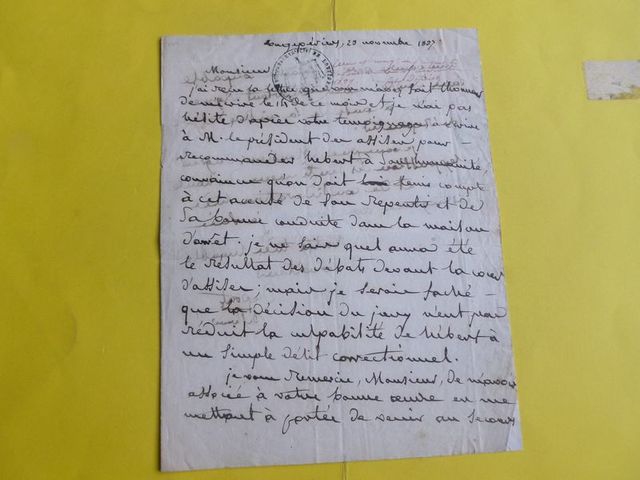 novembre
Monsieur
j'ai reçu la lettre que vous m'avez fait l'honneur
de m'écrire le 15 de ce mois et je n'ai pas
hésité d'après votre témoignage à écrire
à M. le président des assises pour
recommander hébert à son humanité,
convaincu qu'on doit tenir compte
à cet accusé de son repentir et de
sa bonne conduite dans la maison
d'arrêt. je ne sais quel aura été
le résultat des débats devant la cour
d'assises; mais je serais faché
que la décision du jury n'eut pas
réduit la culpabilité de hébert à
un simple délit correctionnel.
je vous remercie, Monsieur, de m'avoir
associé à votre bonne œuvre en me
mettant à portée de venir au secours